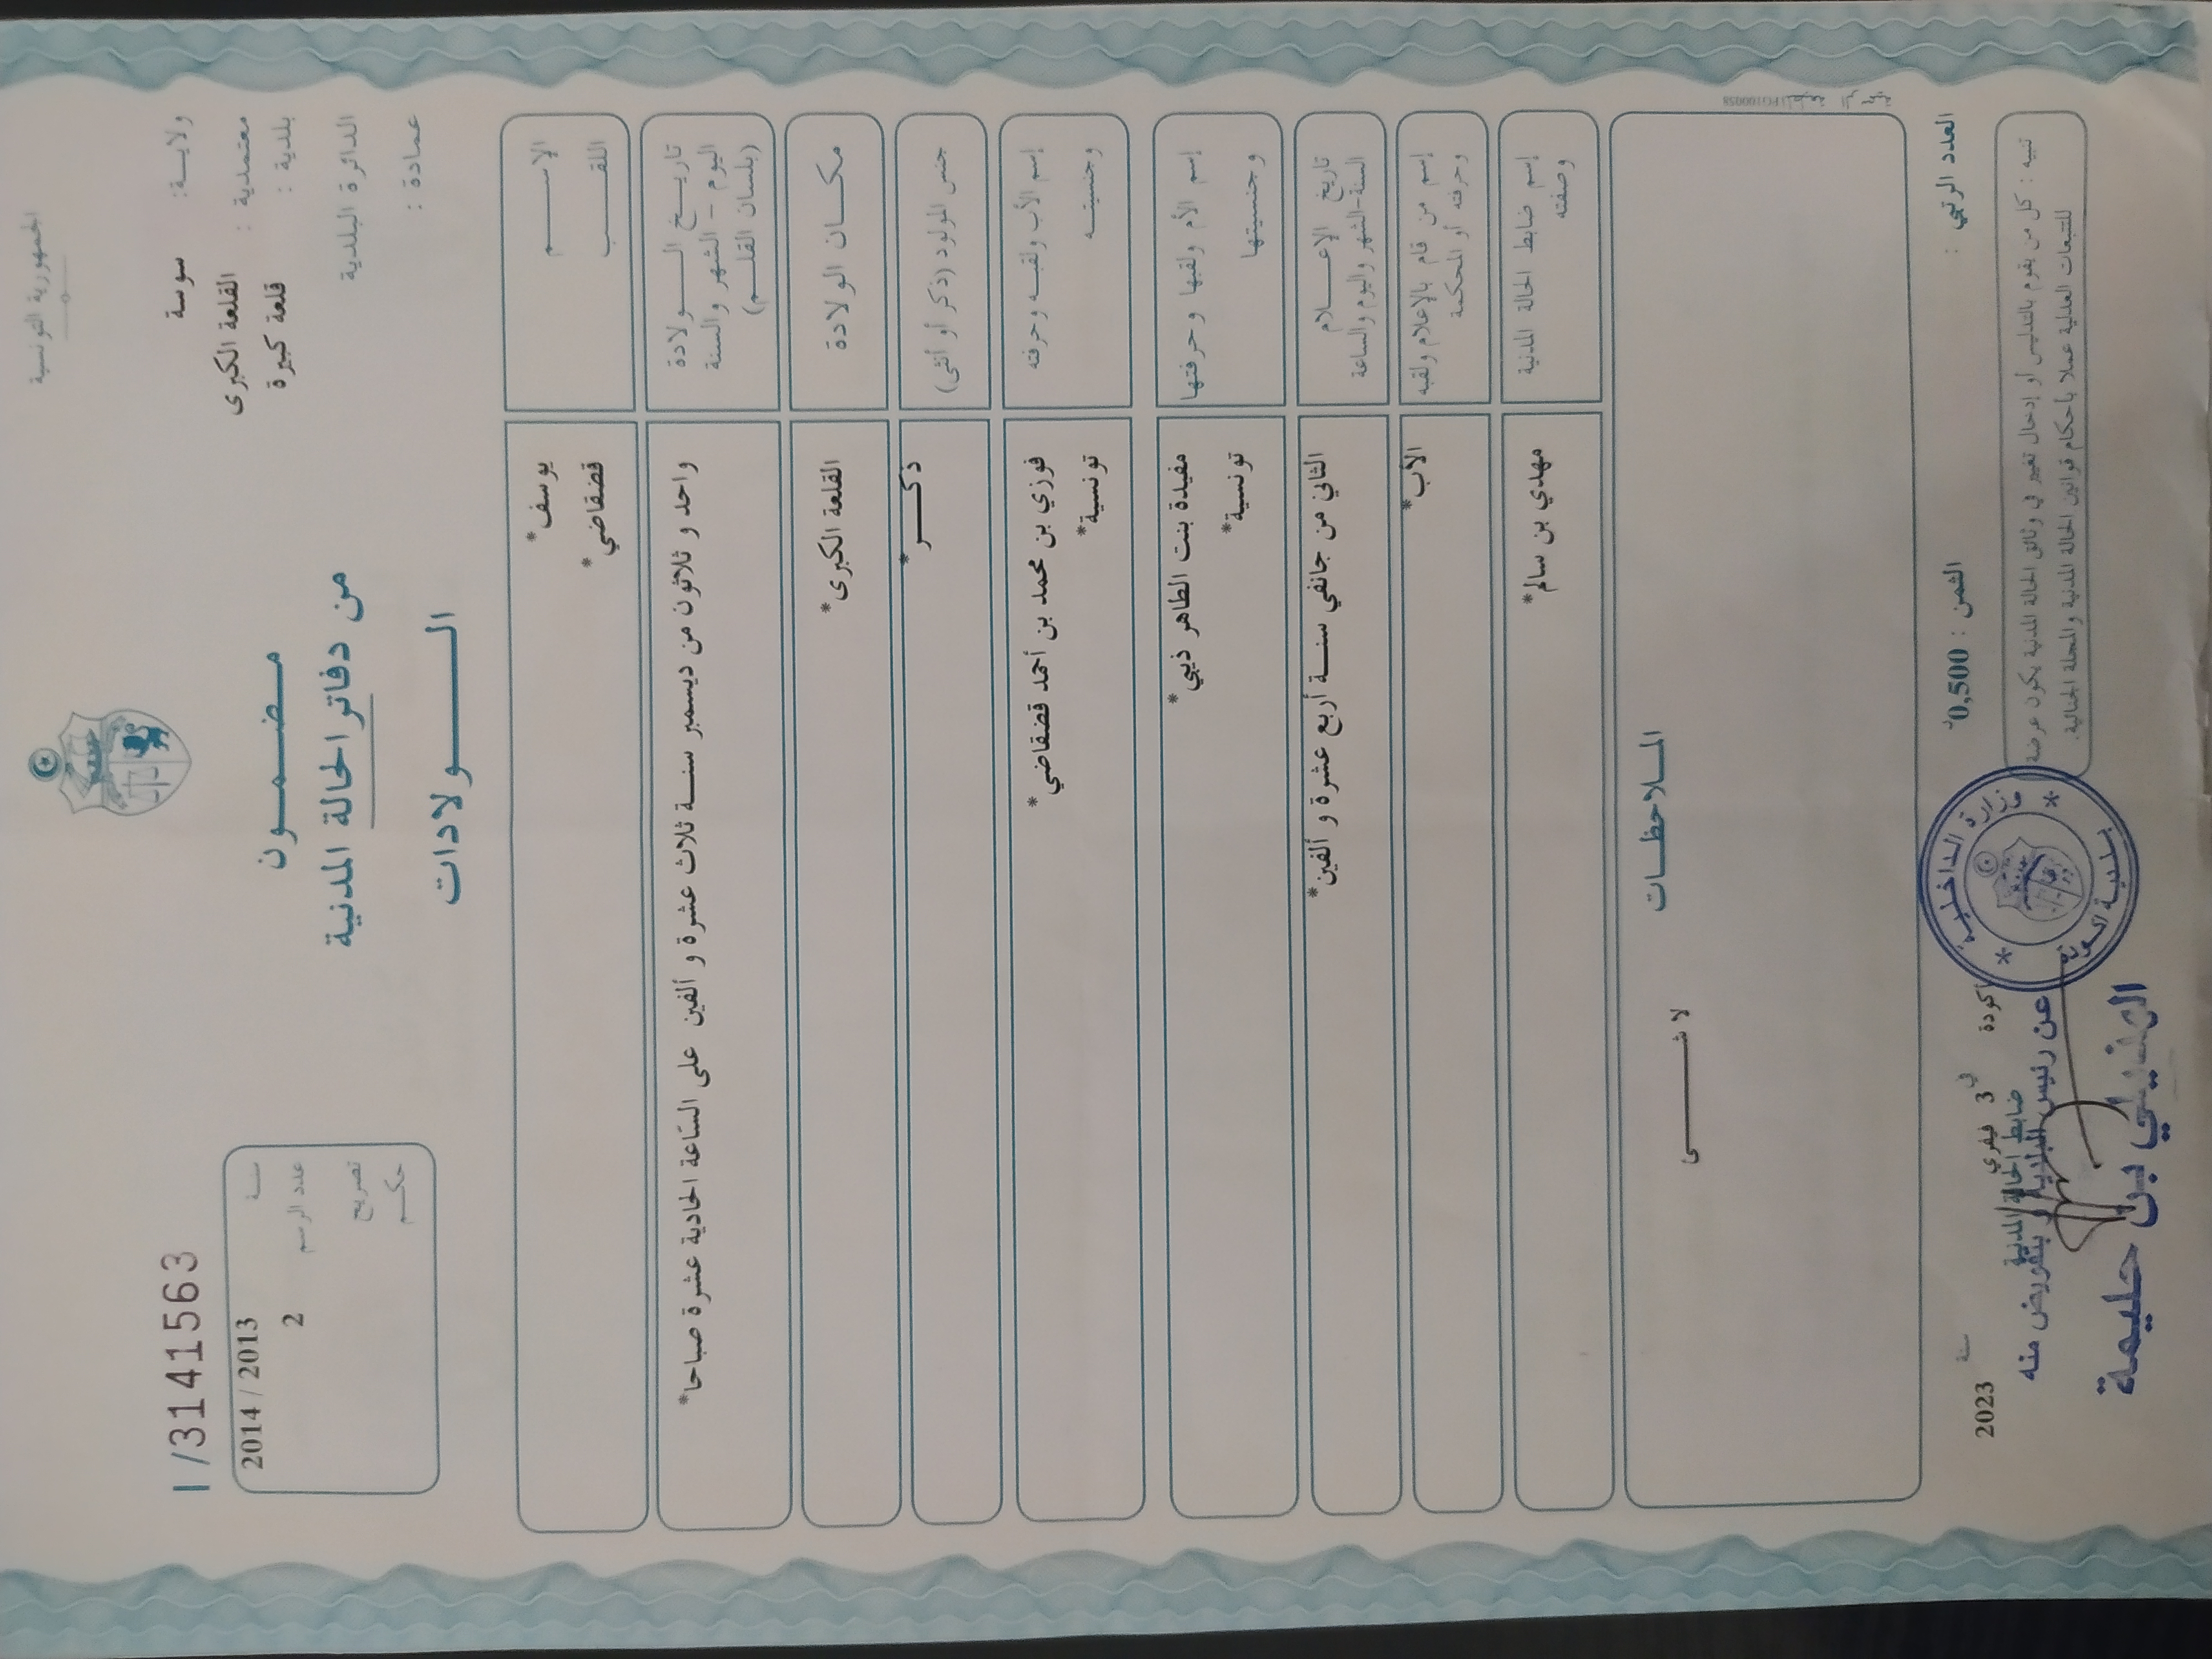 الجمهورية التونسية
ولايـــة: سوسة
معتمدية : القلعة الكبرى
بلدية : قلعة كبيرة
الدائرة البلدية
عمادة :
مـضـمـــون
من دفاتر الحالة المدنية
الـــــولادات
I /31441563
سـنـة 2014 / 2013
عدد الرسم 2
تصريح
حكـــم
الإســـــم يوسف*
اللقـــب قضقاضي*
تاريـــخ الـــــولادة
اليوم – الشهر والسنة
(بلسان القلـــم)
واحد و ثلاثون من ديسمبر سنـــة ثلاث عشرة و ألفين على السّاعة الحادية عشرة صباحا*
مكـــان الولادة القلعة الكبرى*
جنس المولود (ذكر أو أنثى) ذكـــر*
إسم الأب ولقبـــه وحرفته فوزي بن محمد بن أحمد قضقاضي*
وجنسيتـــه تونسية*
إسم الأم ولقبها وحرفتها مفيدة بنت الطاهر ذيبي*
وجنسيتها تونسية*
تاريخ الإعـــلام
السنة-الشهر واليوم والساعة
الثاني من جانفي سنـــة أربع عشرة و ألفين*
إسم من قام بالإعلام ولقبه الأب*
وحرفته أو المحكمة
إسم ضابط الحالة المدنية مهدي بن سالم*
وصفته
المـــلاحظـــات
لا شـــــى
العدد الرتبي :
الثمن : 0,500د
أكودة في 3 فيفري سنة 2023
ضابط الحالة المدنية
عن رئيس البلدية و بتفويض منه
بن حليمة
وزارة الداخلية
تنبيه : كل من يقوم بالتدليس أو إدخال تغيير في وثائق الحالة المدنية يكون عرضة
للتتبعات العدلية عملا بأحكام قوانين الحالة المدنية والمجلة الجنائية.